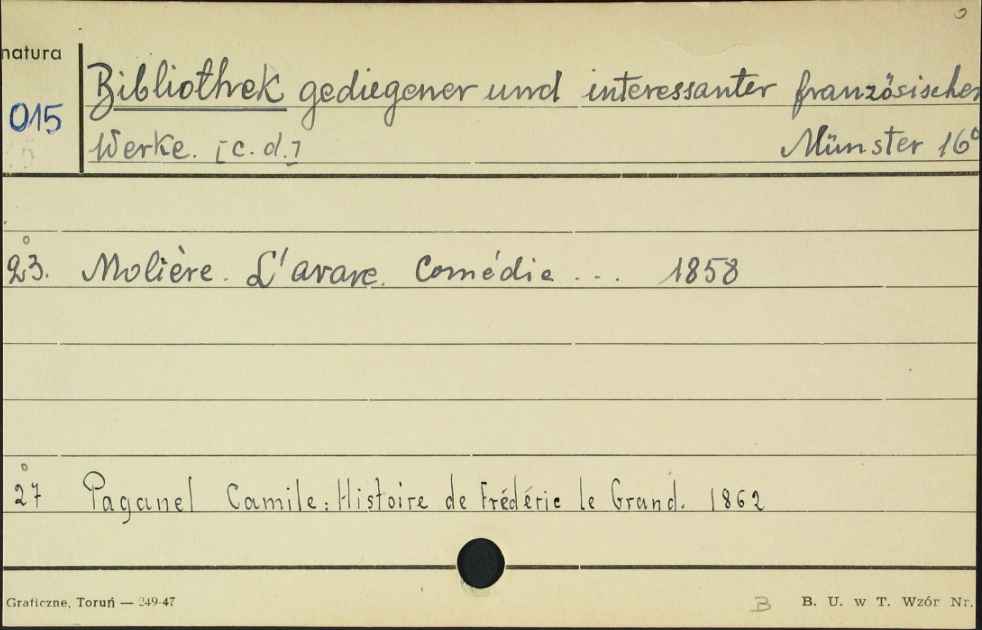 natura
015
Bibliothek gediegener und interessanter französischer
Werke. [c. d.] Münster 16°
23. Molière. L'avare. Comédie ... 1858
27 Paganel Camile: Histoire de Frédéric le Grand. 1862
Graficzne, Toruń — 249-47
B B. U. w T. Wzór Nr.